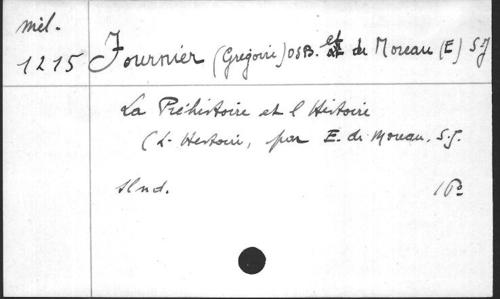 mél.
1215 Fournier (Grégoire) OSB. et de Moreau (E) S.J
La Préhistoire et l'Histoire
(L'Histoire, par E. de Moreau, S.J.
slnd. 16°